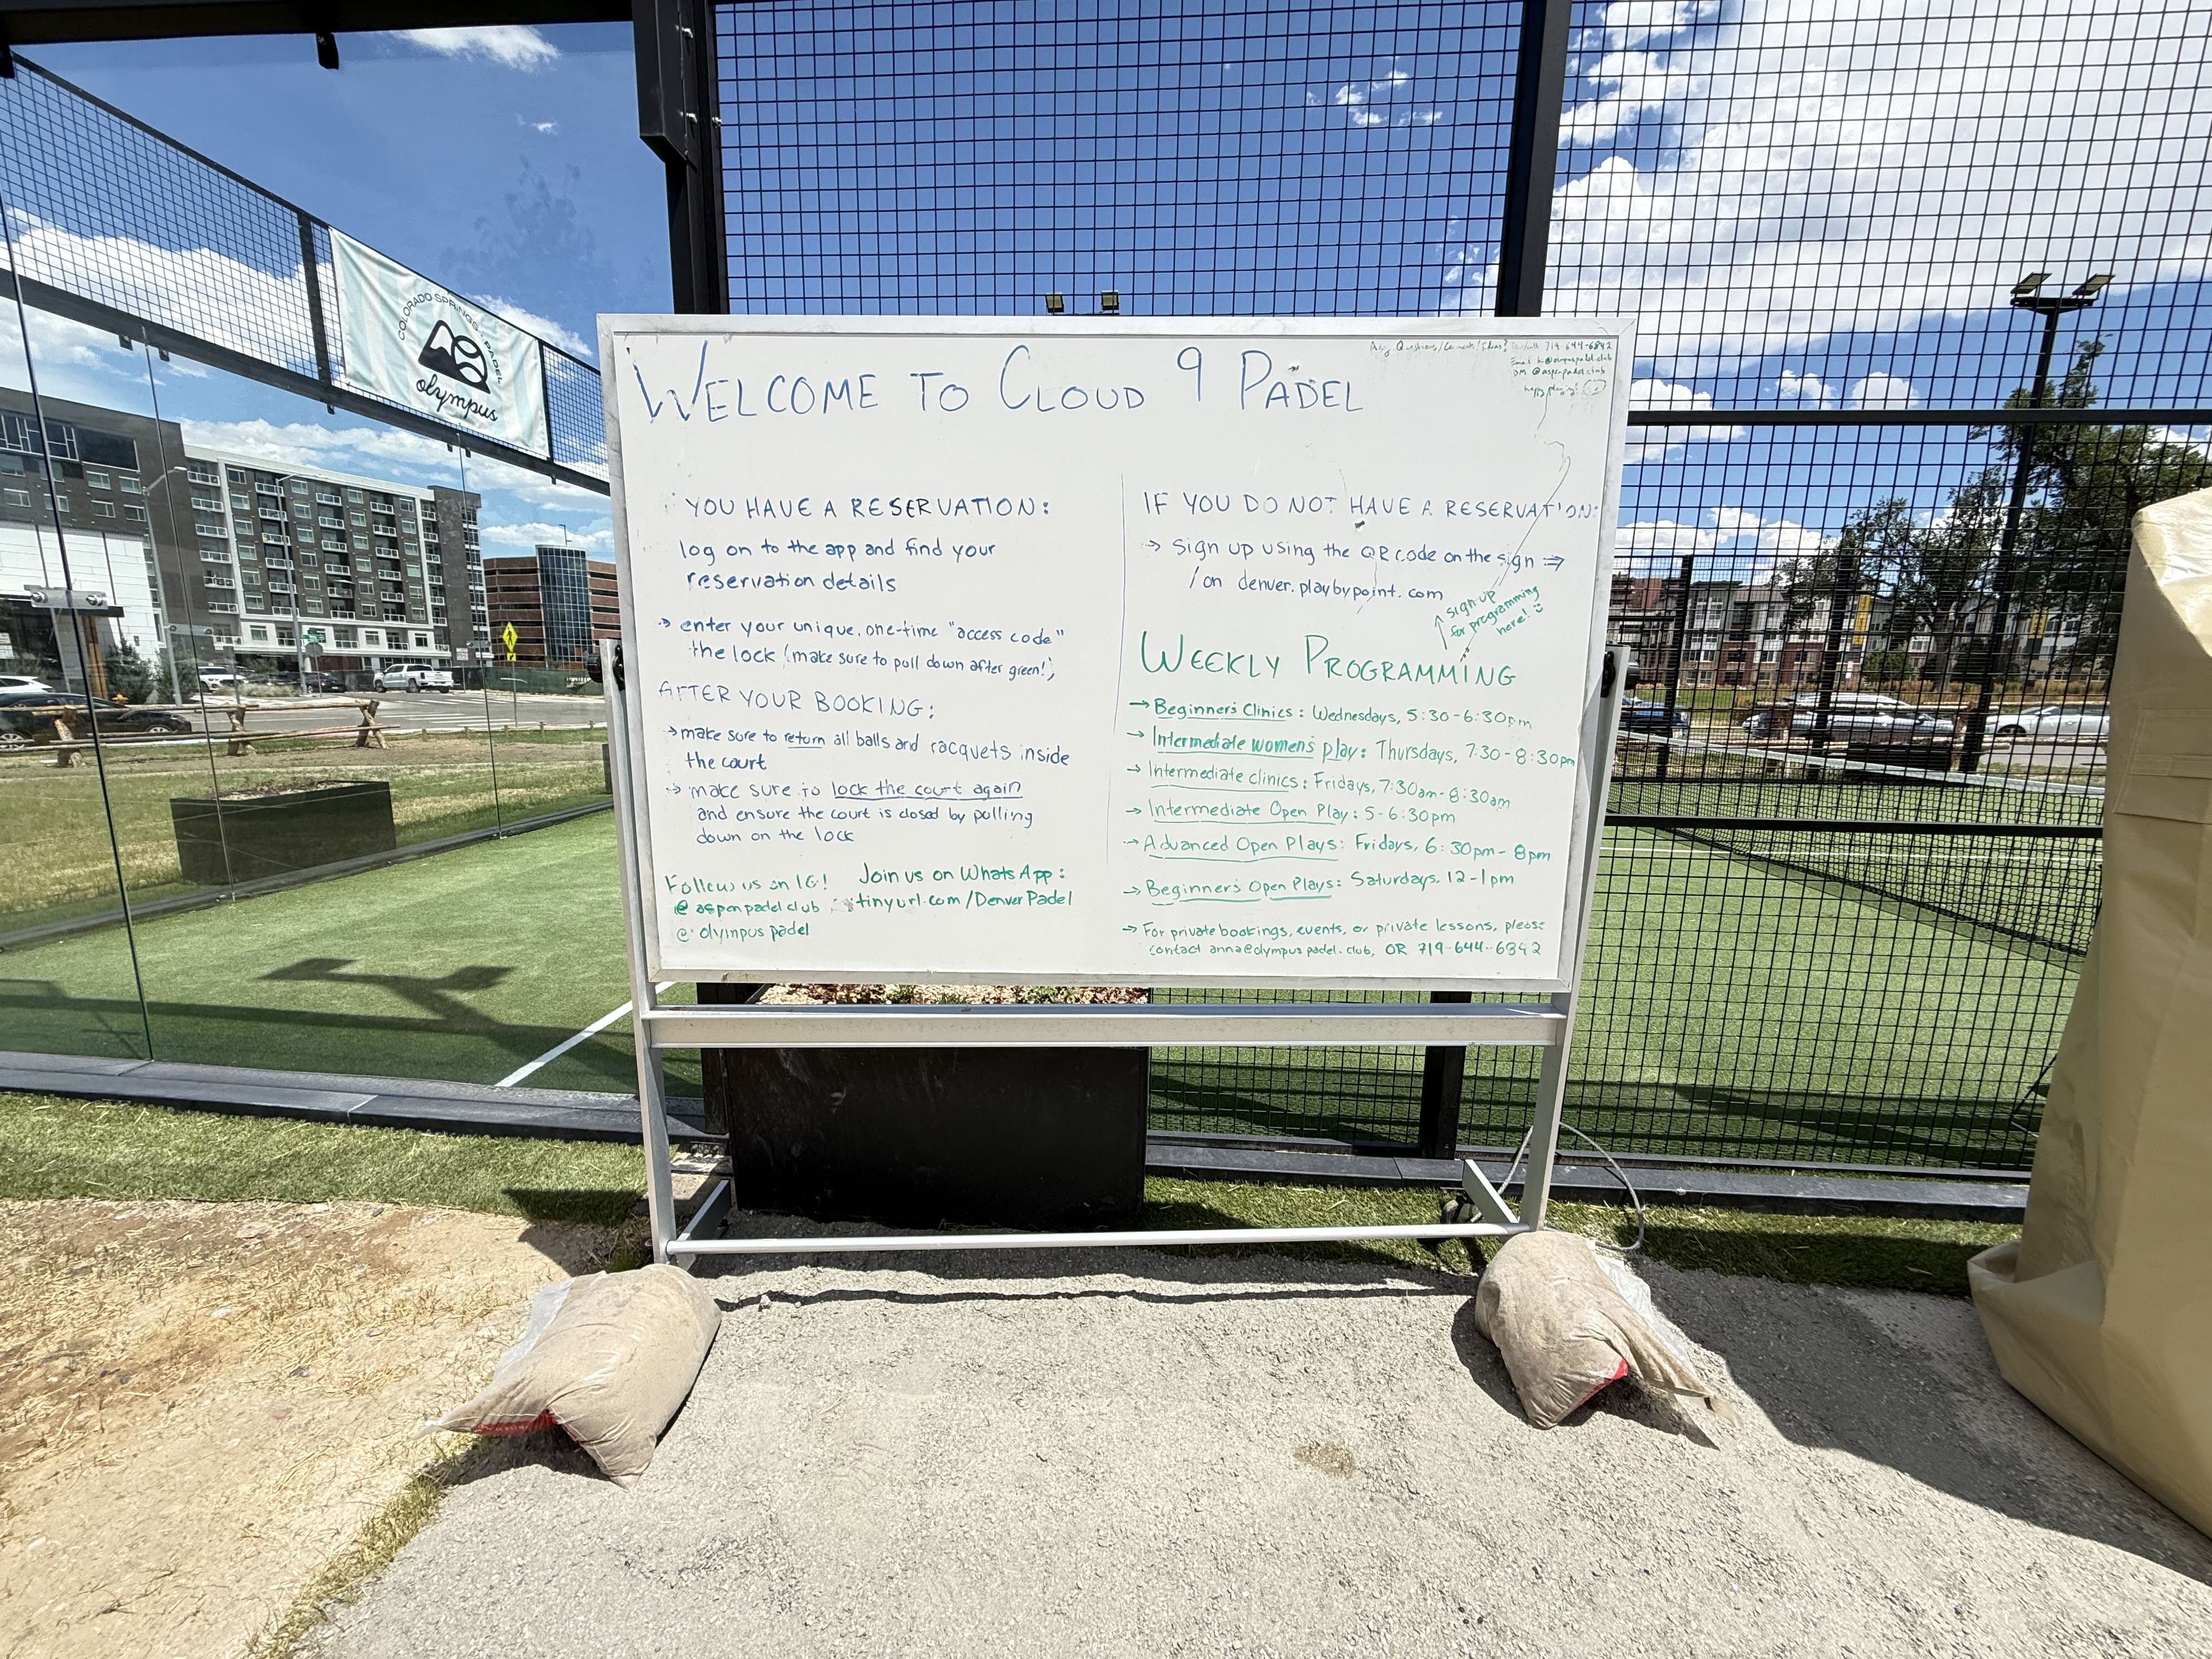 COLORADO SPRINGS PADEL
olympus
WELCOME TO CLOUD 9 PADEL
Any Questions/Comments/Ideas? 719-644-6842
Email hi@olympuspadel.club
DM @aspenpadelclub
happy playing!
YOU HAVE A RESERVATION:
log on to the app and find your
reservation details
→ enter your unique, one-time "access code"
the lock (make sure to pull down after green!)
AFTER YOUR BOOKING:
→ make sure to return all balls and racquets inside
the court
→ make sure to lock the court again
and ensure the court is closed by pulling
down on the lock
Follow us on IG!
@aspenpadelclub
@olympuspadel
Join us on WhatsApp:
tinyurl.com/DenverPadel
IF YOU DO NOT HAVE A RESERVATION:
→ sign up using the QR code on the sign ⇒
/on denver.playbypoint.com
↑ sign-up
for programming
here! :)
WEEKLY PROGRAMMING
→ Beginner's Clinics: Wednesdays, 5:30-6:30pm
→ Intermediate women's play: Thursdays, 7:30-8:30pm
→ Intermediate clinics: Fridays, 7:30am-8:30am
→ Intermediate Open Play: 5-6:30pm
→ Advanced Open Plays: Fridays, 6:30pm-8pm
→ Beginner's Open Plays: Saturdays, 12-1pm
→ For private bookings, events, or private lessons, please
contact anna@olympuspadel.club, OR 719-644-6842